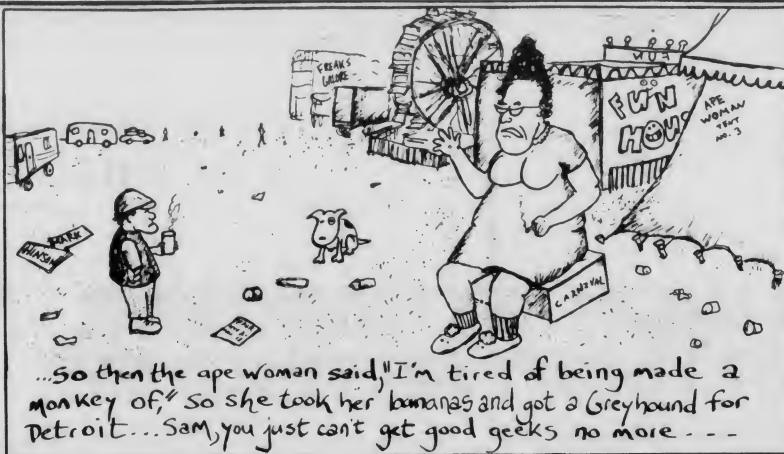 FREAKS
GALORE
FUN
FUN
HOUS
APE
WOMAN
TENT
NO. 3
MARK
HINSIN
CARNIVAL
...So then the ape woman said, "I'm tired of being made a
monkey of," So she took her bananas and got a Greyhound for
Detroit... Sam, you just can't get good geeks no more - - -